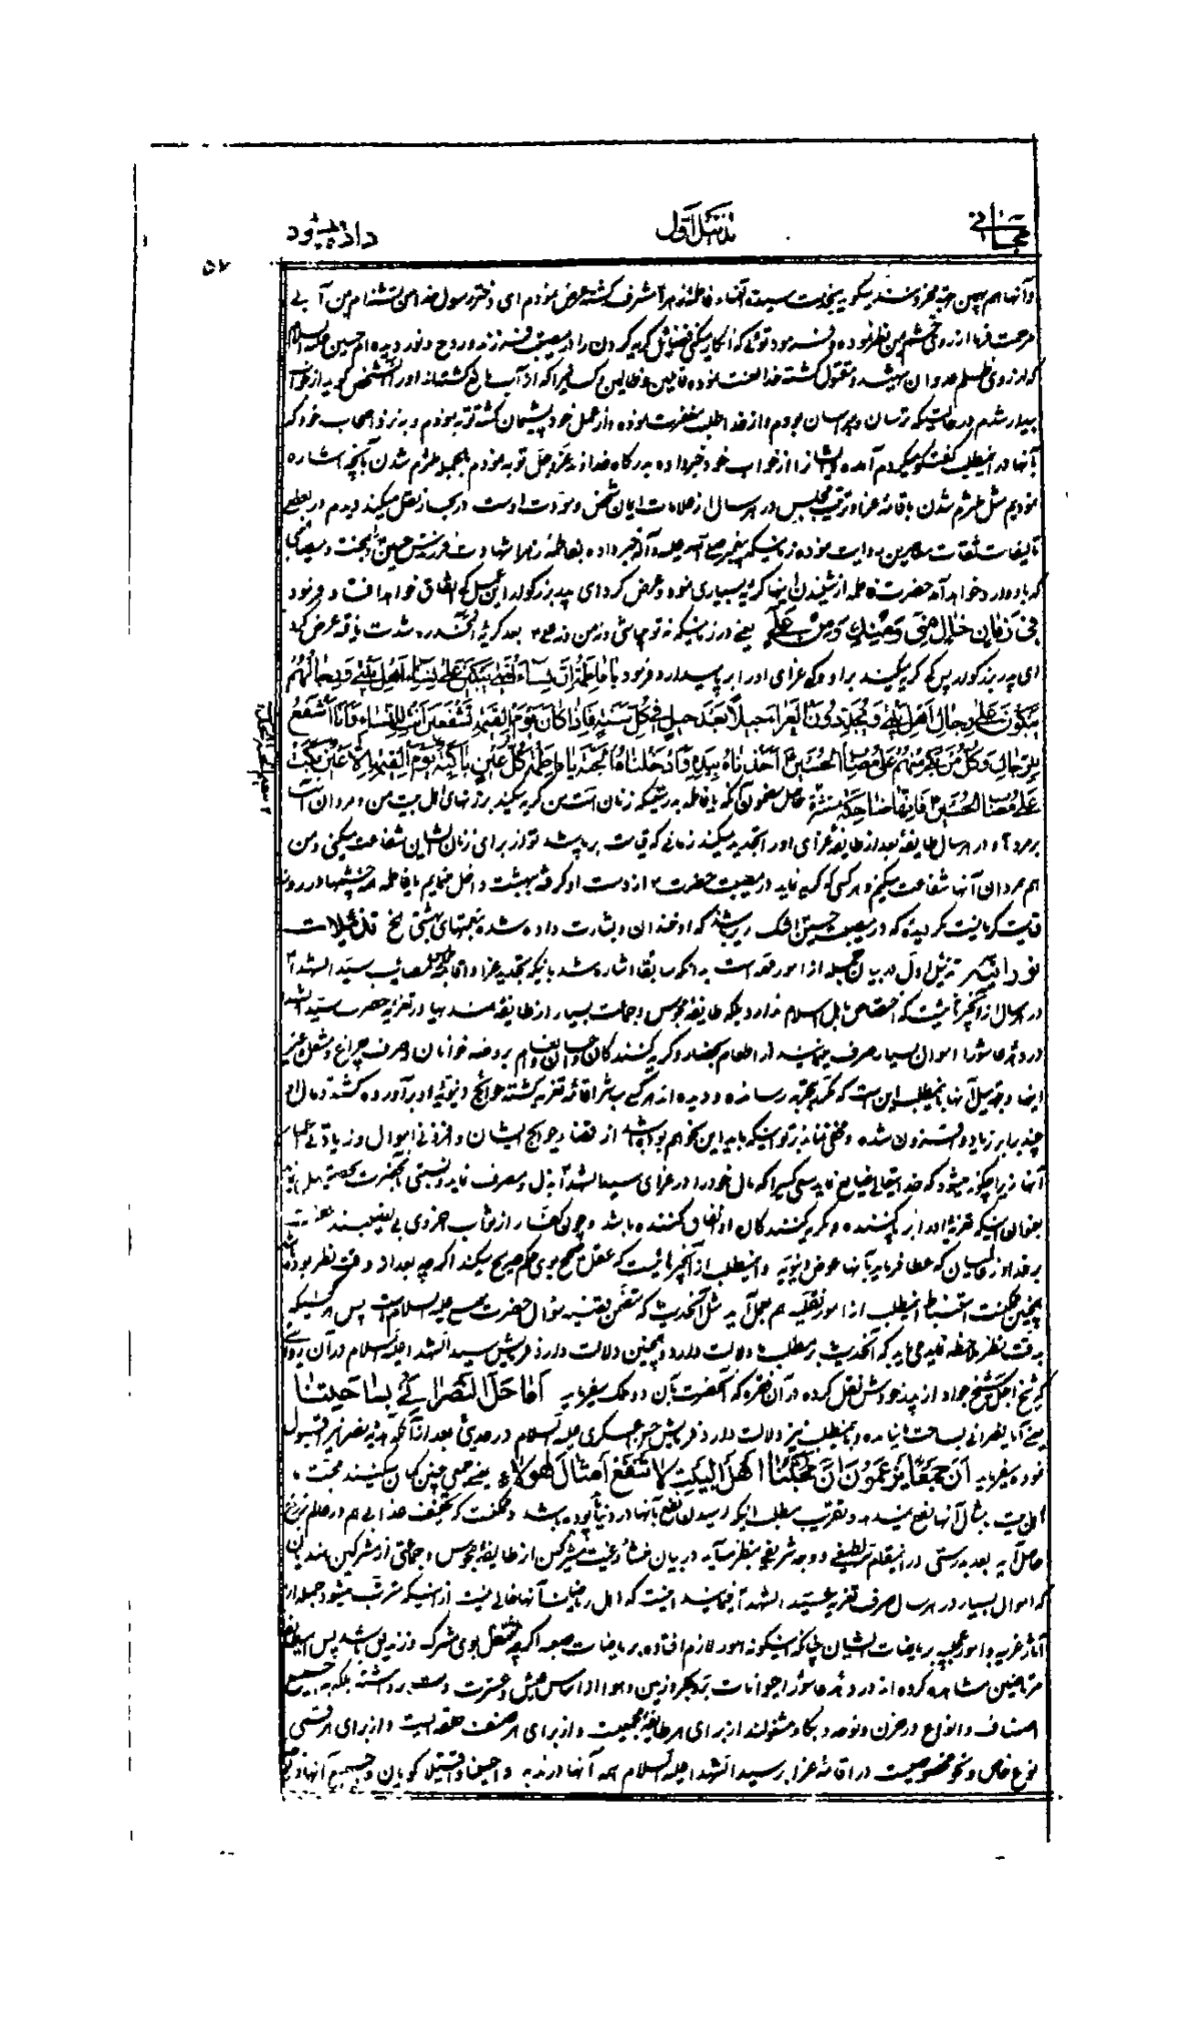 مجانی تذئیل اول داده میشود
۵۷
و آنها هم بهمین مرتبه محزونند میگوید بخدمت سیدة النساء فاطمه زهرا مشرف گشته عرض نمودم ای دختر رسول خدا من تشنه‌ام بمن آبی
مرحمت فرما از روی خشم بمن نظر نموده و فرمود توئی که انکار میکنی فضل گریه کردن را در مصیبت فرزند و روح و نور دیده‌ام حسین علیه السلام
که از روی ظلم و عدوان شهید و مقتول گشته خدا لعنت نموده قاتلین و ظالمین و کسانیرا که از آب مانع گشته‌اند اورا آن شخص گوید از خواب
بیدار شدم در حالتیکه ترسان و هراسان بودم و از خدا طلب مغفرت نموده و از عمل خود پشیمان گشته توبه نمودم و به نزد اصحاب خود که
با آنها در اینمطلب گفتگو میکردم آمده و ایشانرا از خواب خود خبر داده بدرگاه خدا عز و جل توبه نمودم بالجمله ملزم شدن بآنچه اشاره
نمودیم مثل ملزم شدن باقامه عزا و ترتیب مجلس در هر سال از علامات ایمان شخص و مودت اوست در بحار نقل میکند دیدم در بعض
تالیفات ثقات معاصرین روایت نموده زمانیکه پیغمبر صلی الله علیه و آله خبر داده بفاطمه زهرا شهادت فرزندش حسین را و محنت و مصائبی
که باو وارد خواهد آمد حضرت فاطمه از شنیدن اینها گریه بسیاری نمود و عرض کرد ای پدر بزرگوار این عمل کی اتفاق خواهد افتاد فرمود
فی زمان خال منی و منک و من علی یعنی در زمانیکه نه تو باشی و نه من و نه علی بعد گریه آنمخدره شدت یافته عرض کرد
ای پدر بزرگوار پس کی گریه میکند بر او و کی عزای اورا بر پا میدارد فرمود یا فاطمة ان نساء امتی یبکین علی نساء اهل بیتی و رجالهم
یبکون علی رجال اهل بیتی و یجددون العزاء جیلا بعد جیل فی کل سنة فاذا کان یوم القیمة تشفعین انت للنساء و انا اشفع
للرجال و کل من بکی منهم علی مصاب الحسین اخذناه بیده و ادخلناه الجنة یا فاطمة کل عین باکیة یوم القیمة الا عین بکت
علی مصاب الحسین فانها ضاحکة مستبشرة حاصل مضمون آنکه یا فاطمه بدرستیکه زنان امت من گریه میکنند بر زنهای اهل بیت من و مردان امت
بر مردها و در هر سال طایفه بعد از طایفه عزای اورا تجدید میکنند زمانی که قیامت بر پا شد تو از برای زنان ایشان شفاعت میکنی و من
هم مردان آنها شفاعت میکنم و هر کسی که گریه نماید در مصیبت حضرت از دست او گرفته ببهشت داخل نمایم یا فاطمه همه چشمها در روز
قیامت گریانست مگر دیده که در مصیبت حسین اشک ریخته باشد که او خندان و بشارت داده شده بنعمتهای بهشتی الخ تذئیلات
نور دانشر تذئیل اول در بیان جمله از امور فقه است بدانکه سابقا اشاره شد باینکه تجدید عزا و اقامه مصائب سید الشهدا
در هر سال از آنچیزهائیست که اختصاص باهل اسلام ندارد بلکه طایفه مجوس و جماعت بسیار از طایفه هند بپا در تعزیه حضرت سید الشهدا
در روز عاشورا اموال بسیار صرف مینمایند از اطعام بحضار و گریه کنندگان و انعام بروضه خوانان و صرف چراغ و مشعل و غیر
اینها و دلیل آنها باینمطلب این است که مکرر بتجربه رسانده و دیده‌اند هر کسی مباشر اقامه تعزیه گشته حوائج دنیویه او بر آورده گشته و مال او
چند برابر زیاد و افزون شده و مخفی نماند بر تو اینکه باید این نحو هم بوده باشد از قضاء حوایج ایشان و افزونی اموال و زیادتی
آنها زیرا چگونه میشود که خدایتعالی ضایع نماید سعی کسیرا که مال خود را در عزای سید الشهدا بذل و مصرف نماید
بعنوان اینکه تعزیه اورا بر پا کننده و گریه کنندگان او انفاق کننده باشد و چون کفار از ثواب اخروی بی نصیبند
بر خداوند عالمیان که عطا فرماید بآنها عوض دنیویه و اینمطلب از آنچیزهائیست که عقل صحیح بوی حکم صریح میکند اگرچه بعد از دقت نظر بوده باشد
همچنین ممکنست استنباط اینمطلب از امور نقلیه هم بعمل آید مثل آنحدیث که متضمن سؤال حضرت علیه السلام است پس هر کسیکه
بدقت نظر ملاحظه نماید می‌یابد که آنحدیث بر مطلب ما دلالت دارد و همچنین دلالت دارد فرمایش سید الشهدا علیه السلام در آن روایت
که شیخ اجل شیخ جواد از پدر خودش نقل کرده در آن فقره که آنحضرت بآن دو ملک میفرماید اما حل النصرانی بساحتنا
یعنی آیا نصرانی بساحت ما نیامده و باینمطلب نیز دلالت دارد فرمایش حضرت عسکری علیه السلام در حدیثی بعد از آنکه هدیه نصرانیرا قبول
نموده میفرماید ان جمعا یزعمون ان محبتنا اهل البیت لا تنفع امثال هؤلاء یعنی جمعی چنین گمان میکنند محبت ما
اهل بیت بمثال آنها نفع نمیدهد و تقریب مطلب اینکه رسیدن نفع بآنها در دنیا بوده باشد و ممکنست که تخفیف عذابی هم در عالم برزخ
حاصل آید بعد بدرستی در اینمقام سر لطیفی و وجه شریفی بنظر میآید در بیان منشأ رغبت مشرکین از طایفه مجوس و جماعتی از مشرکین هندیان
که اموال بسیار در هر سال صرف تعزیه سید الشهدا مینمایند اینست که اهل ریاضیات آنها خالی نیست از اینکه مترتب میشود جمله از
آثار غریبه و امور عجیبه بر ریاضات ایشان چنانکه اینگونه امور لازم افتاده بر ریاضات صعبه اگرچه مشتغل بوی مشرک و زندیق باشد پس این طایفه
مرتاضین مشاهده کرده‌اند در روز عاشورا حیوانات برّ و بحر و زمین و هوا از اساس عیش و عشرت دست برداشته بلکه جمیع
اصناف و انواع در حزن و نوحه و بکاء مشغولند از برای هر طایفه جمعیت و از برای هر صنف حلقه ایست و از برای هر قسمی
نوع خاص و نحو مخصوصیست در اقامه عزا بر سید الشهدا علیه السلام همه آنها در ندبه وا حسینا وا قتیلا گویان و جمیع آنها در